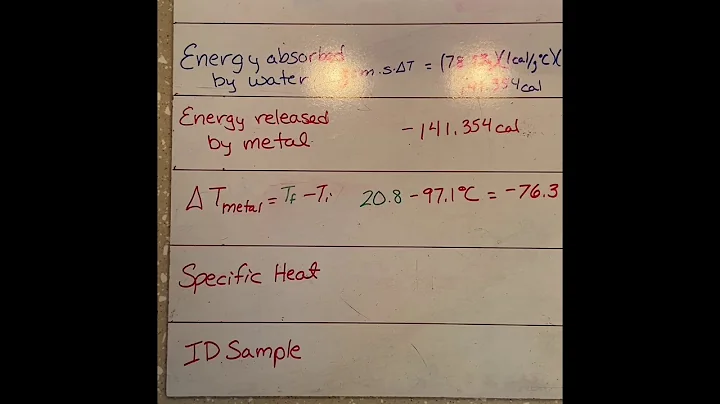 Energy absorbed
by water m.s.ΔT = (78.53g)(1cal/g°C)(
141.354cal
Energy released
by metal -141.354cal
ΔTmetal = Tf - Ti 20.8 - 97.1°C = -76.3
Specific Heat
ID Sample